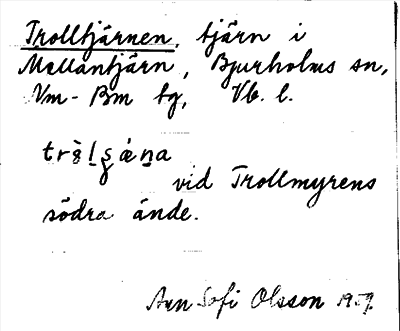 Trolltjärnen, tjärn i
Mellantjärn, Bjurholms sn,
Vm - Bm tg, Vb. l.
vid Trollmyrens
södra ände.
Ann Sofi Olsson 1959.